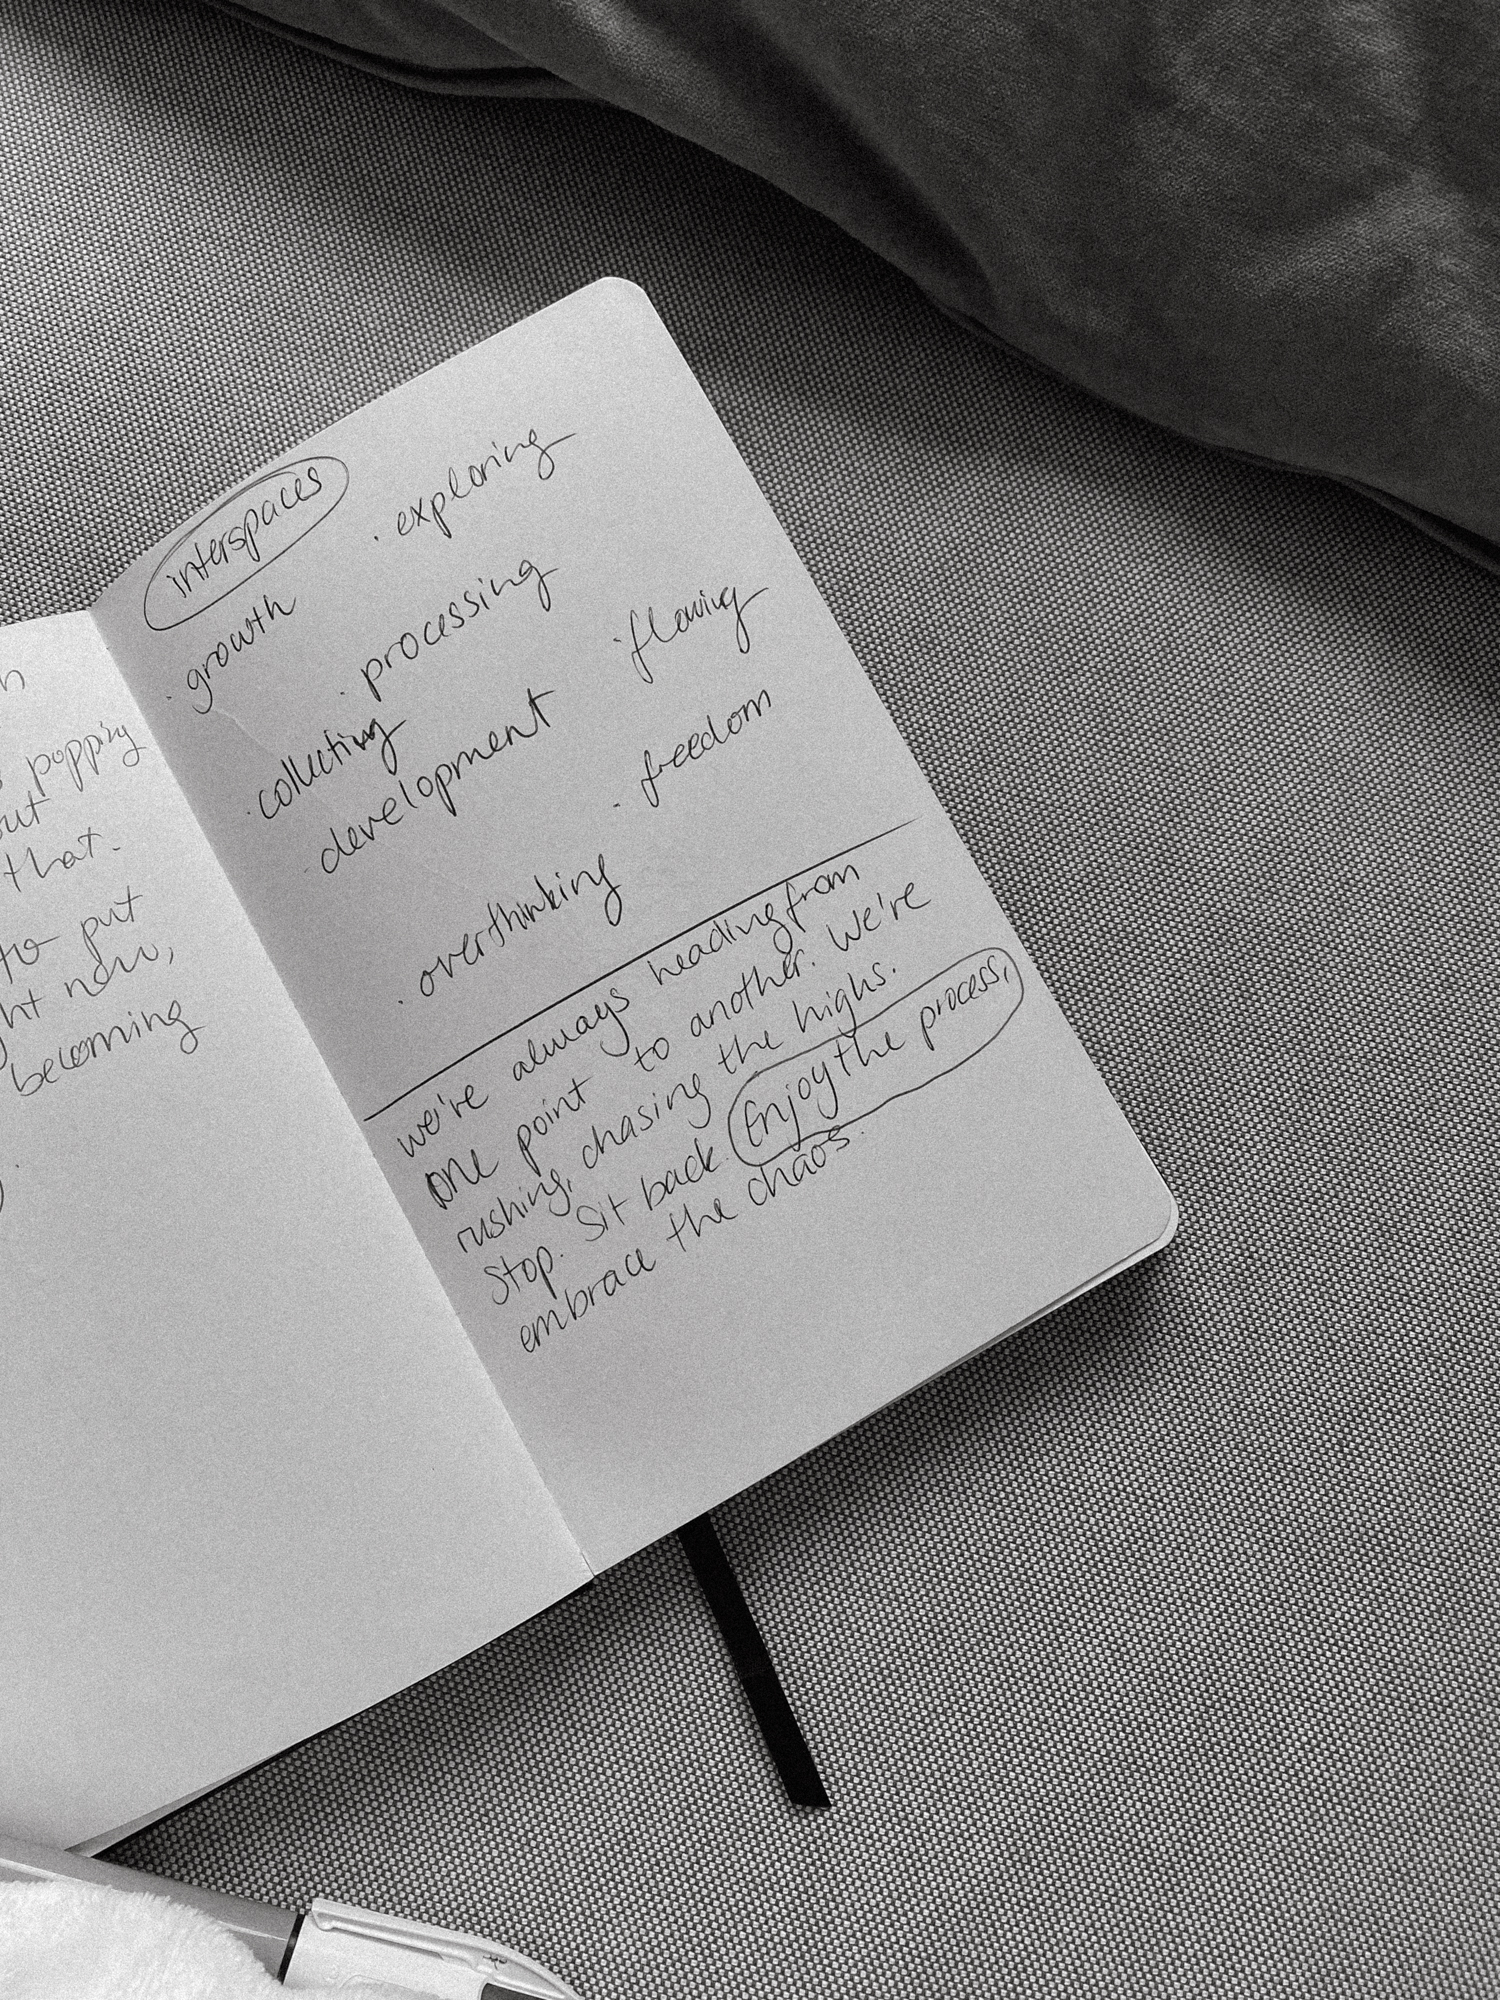 popping
out
that.
to put
now,
becoming
interspaces
· exploring
· growth
· processing
· flowing
· collecting
· development
· freedom
· overthinking
we're always heading from
one point to another. We're
rushing, chasing the highs.
Stop. Sit back. Enjoy the process,
embrace the chaos.